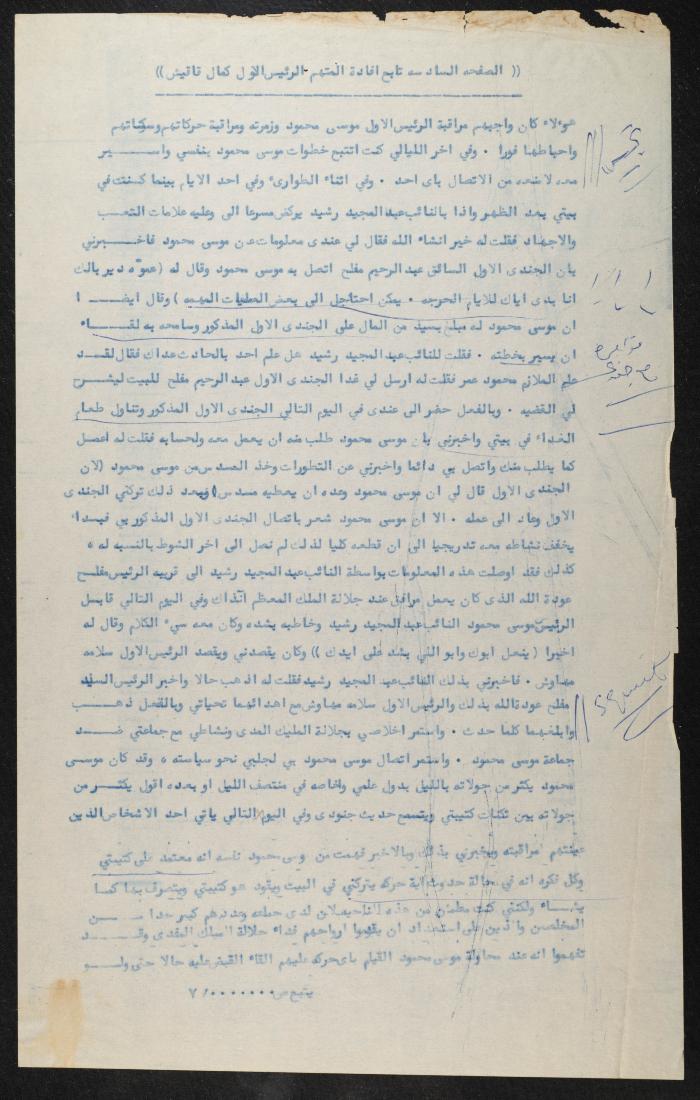 (( الصفحه السادسه تابع افادة المتهم الرئيس الاول كمال قاقيش ))
هو٠لاء كان واجبهم مراقبة الرئيس الاول موسى محمود وزمرته ومراقبة حركاتهم وسكناتهم
واحباطها فورا ٠ وفي اخر الليالي كنت اتتبع خطوات موسى محمود بنفسي واسير
معه لامنعه من الاتصال باى احد ٠ وفي اثناء الطوارىء وفي احد الايام بينما كنت في
بيتي بعد الظهر واذا بالنائب عبد المجيد رشيد يركض مسرعا الى وعليه علامات التعب
والاجهاد فقلت له خير انشاء الله فقال لي عندى معلومات عن موسى محمود فاخبرني
بان الجندى الاول السائق عبد الرحيم مفلح اتصل به موسى محمود وقال له ( عمو٠ه دير بالك
انا بدى اياك للايام الحرجه ٠ يمكن احتاجك الى بعض الطلبات المهمه ) وقال ايضا
ان موسى محمود له مبلغ بسيط من المال على الجندى الاول المذكور وسامحه به لقاء
ان يسير بخطته ٠ فقلت للنائب عبد المجيد رشيد هل علم احد بالحادث عداك فقال لقد
علم الملازم محمود عمر فقلت له ارسل لي غدا الجندى الاول عبد الرحيم مفلح للبيت ليشرح
لي القضيه ٠ وبالفعل حضر الى عندى في اليوم التالي الجندى الاول المذكور وتناول طعام
الغداء في بيتي واخبرني بان موسى محمود طلب منه ان يعمل معه ولحسابه فقلت له اعمل
كما يطلب منك واتصل بي دائما واخبرني عن التطورات وخذ المسدس من موسى محمود (لان
الجندى الاول قال لي ان موسى محمود وعده ان يعطيه مسدس) وبعد ذلك تركني الجندى
الاول وعاد الى عمله ٠ الا ان موسى محمود شعر باتصال الجندى الاول المذكور بي فبداء
يخفف نشاطه معه تدريجيا الى ان قطعه كليا لذلك لم نصل الى اخر الشوط بالنسبه له ٠
كذلك فقد اوصلت هذه المعلومات بواسطة النائب عبد المجيد رشيد الى قريبه الرئيس مفلح
عودة الله الذى كان يعمل مرافق عند جلالة الملك المعظم انذاك وفي اليوم التالي قابل
الرئيس موسى محمود النائب عبد المجيد رشيد وخاطبه بشده وكان معه سيء الكلام وقال له
اخيرا ( ينعل ابوك وابو اللي يشد على ايدك )) وكان يقصدني ويقصد الرئيس الاول سلامه
عطاوش ٠ فاخبرني بذلك النائب عبد المجيد رشيد فقلت له اذهب حالا واخبر الرئيس السيد
مفلح عودة الله بذلك والرئيس الاول سلامه عطاوش مع اهدائهما تحياتي وبالفعل ذهب
وابلغهما كلما حدث ٠ واستمر اخلاصي بجلالة المليك المفدى ونشاطي مع جماعتي ضد
جماعة موسى محمود ٠ واستمر اتصال موسى محمود بي لجلبي نحو سياسته ٠ وقد كان موسى
محمود يكثر من جولاته بالليل بدون علمي وخاصه في منتصف الليل او بعده اقول يكثر من
جولاته بين ثكنات كتيبتي ويتسمع حديث جنودى وفي اليوم التالي ياتي احد الاشخاص الذين
عينتهم لمراقبته ويخبرني بذلك وبالاخير فهمت من موسى محمود نفسه انه معتمد على كتيبتي
وكل فكره انه في حالة حدوث اية حركه يتركني في البيت ويقود هو كتيبتي ويتصرف بها كما
يشاء ولكنني كنت مطمئن من هذه الناحيه لان لدى جماعه وعددهم كبير جدا من
المخلصين والذين على استعداد ان يقدموا ارواحهم فداء جلالة الملك المفدى وقد
تفهموا انه عند محاولة موسى محمود القيام باى حركه عليهم القاء القبض عليه حالا حتى ولو
يتبع ص ٠٠٠٠٠٠٠/ ٧